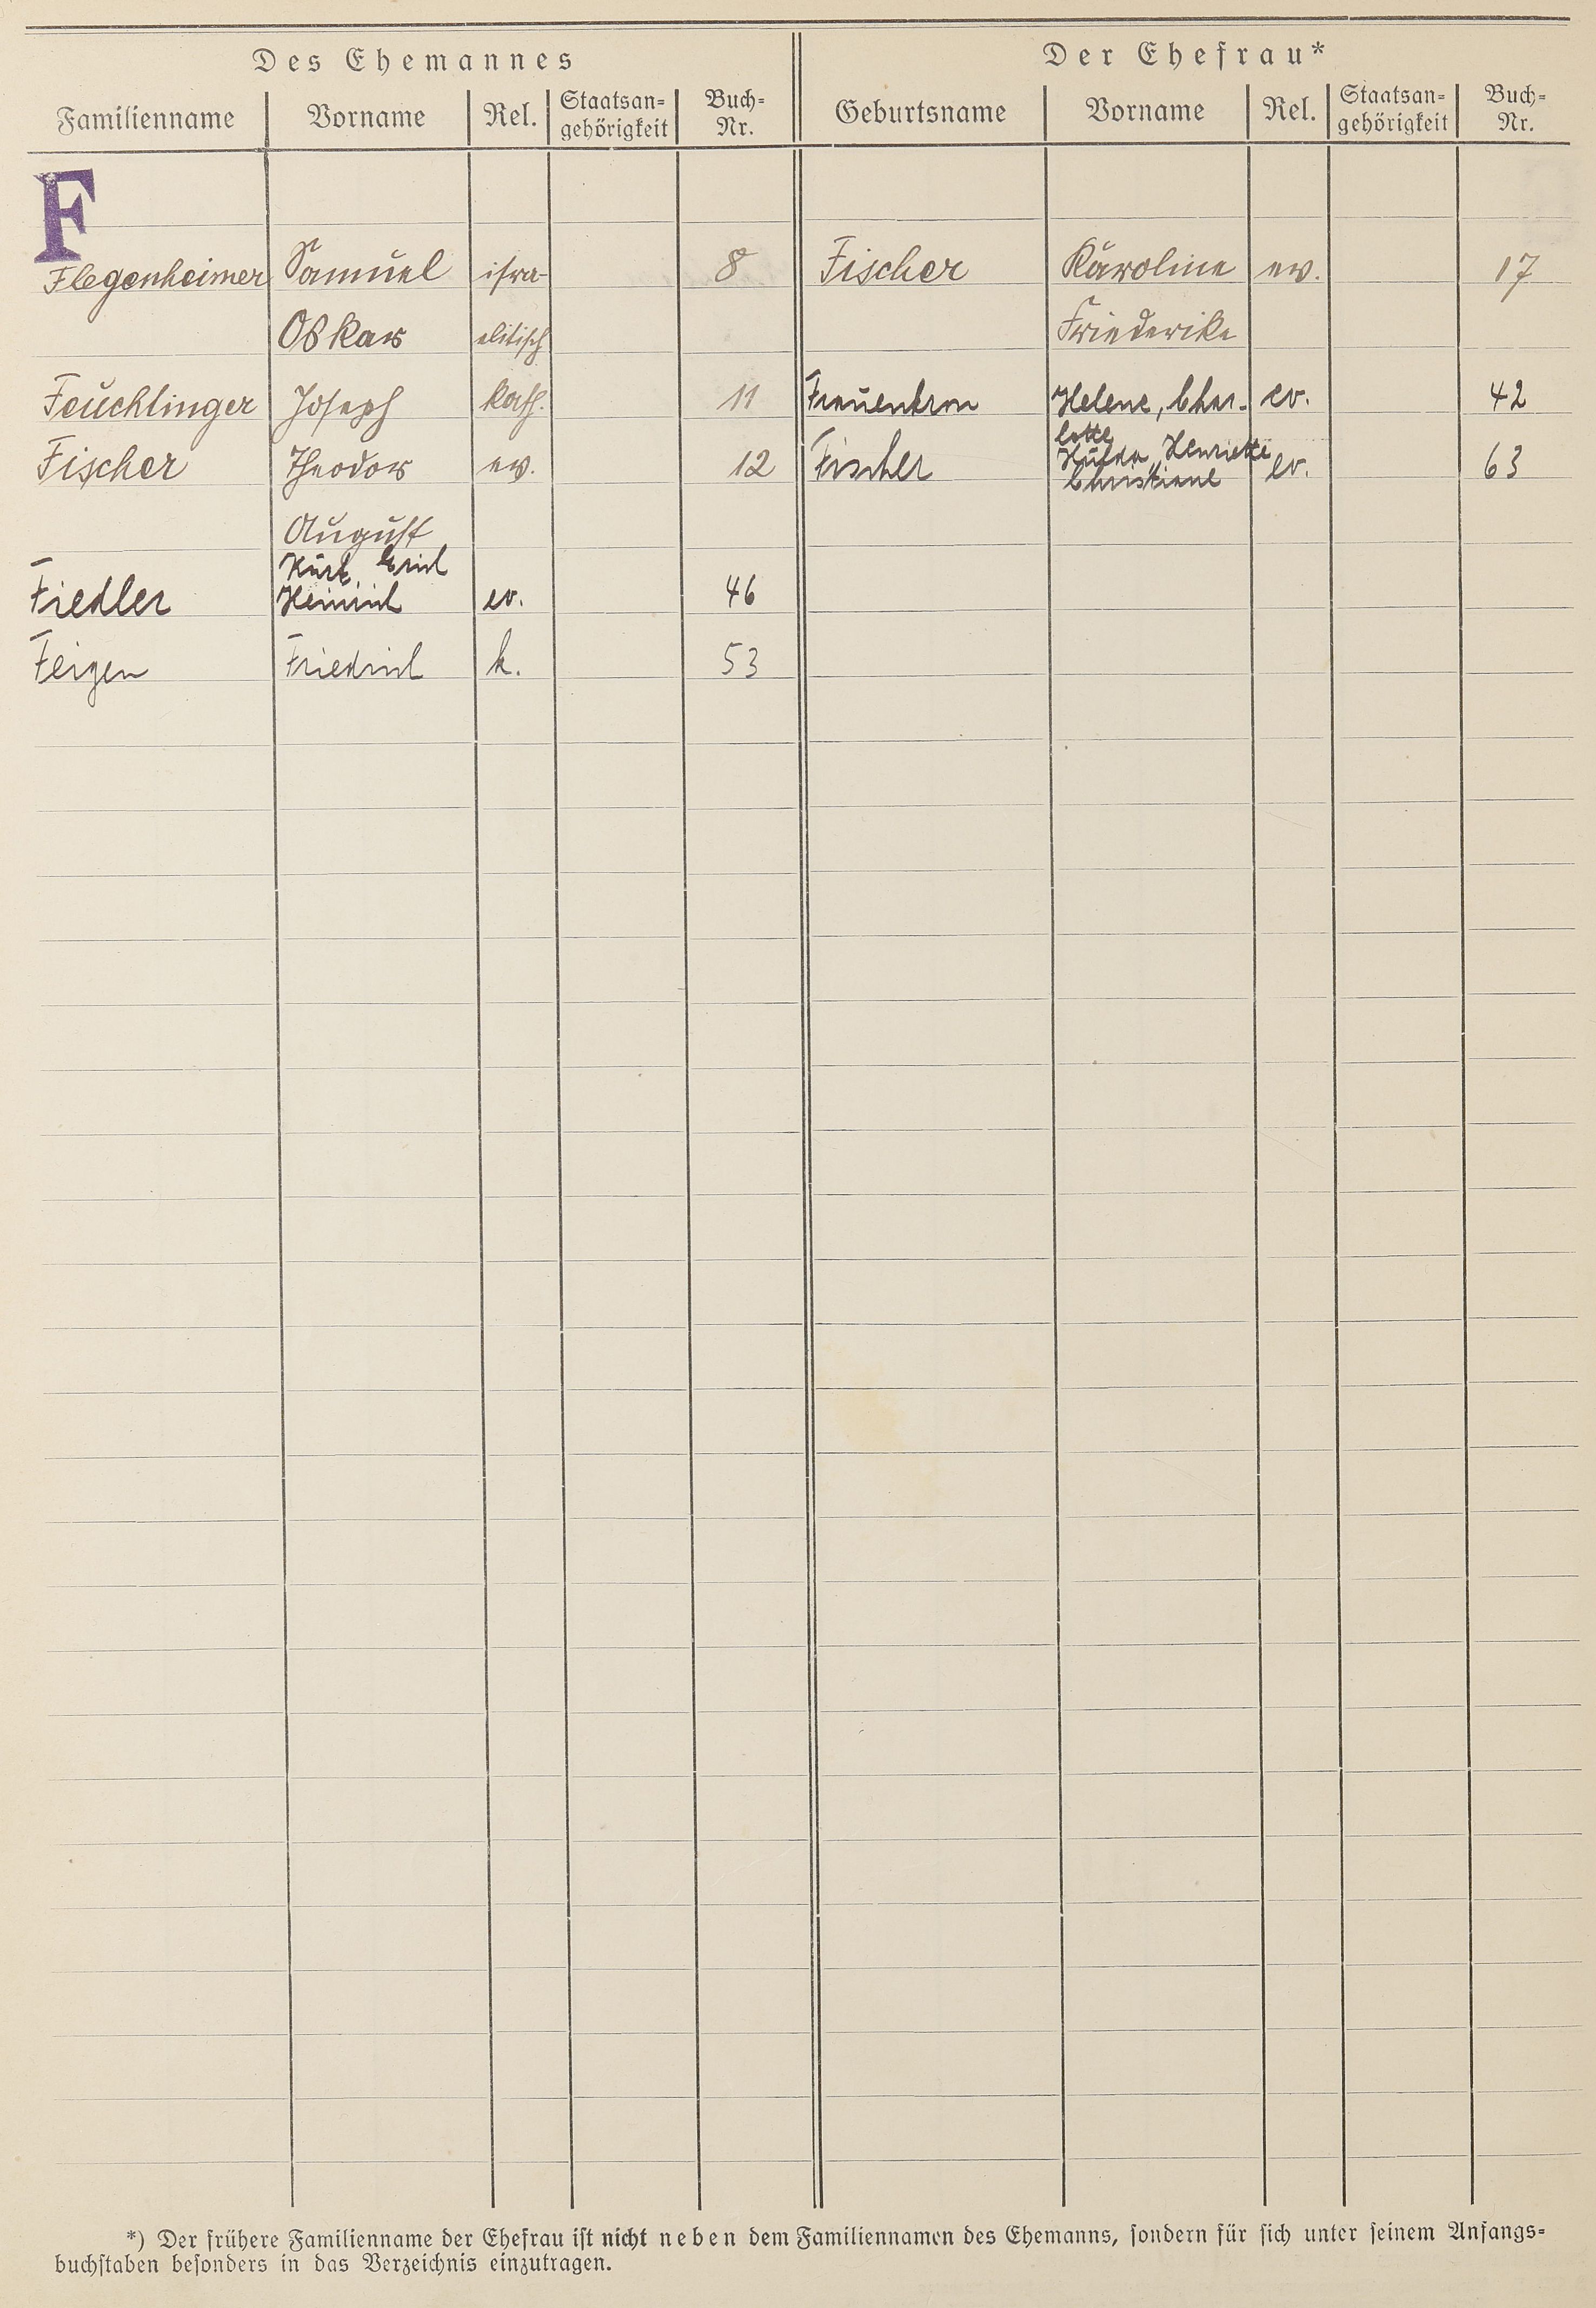 Des Ehemannes
Der Ehefrau*
Familienname Vorname Rel. Staatsan=gehörigkeit Buch=Nr. Geburtsname Vorname Rel. Staatsan=gehörigkeit Buch=Nr.
F
Flegenheimer Samuel isra- 8 Fischer Karoline ev. 17
Oskar elitisch Friederike
Feuchtinger Joseph kath. 11 Frauenkron Helene, Char- ev. 42
lotte
Fischer Theodor ev. 12 Fischer Hulda, Henriette ev. 63
Christiane
August
Kurt Erich
Fiedler Heinrich ev. 46
Feigen Friedrich k. 53
*) Der frühere Familienname der Ehefrau ist nicht neben dem Familiennamen des Ehemanns, sondern für sich unter seinem Anfangs=
buchstaben besonders in das Verzeichnis einzutragen.